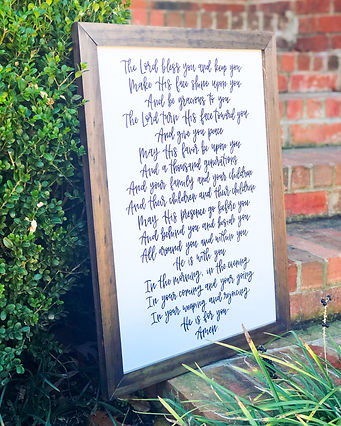 The Lord bless you and keep you
Make His face shine upon you
And be gracious to you
The Lord turn His face toward you
And give you peace
May His favor be upon you
And a thousand generations
And your family and your children
And their children and their children
May His presence go before you
And behind you and beside you
All around you and within you
He is with you
In the morning, in the evening
In your coming and your going
In your weeping and rejoicing
He is for you
Amen